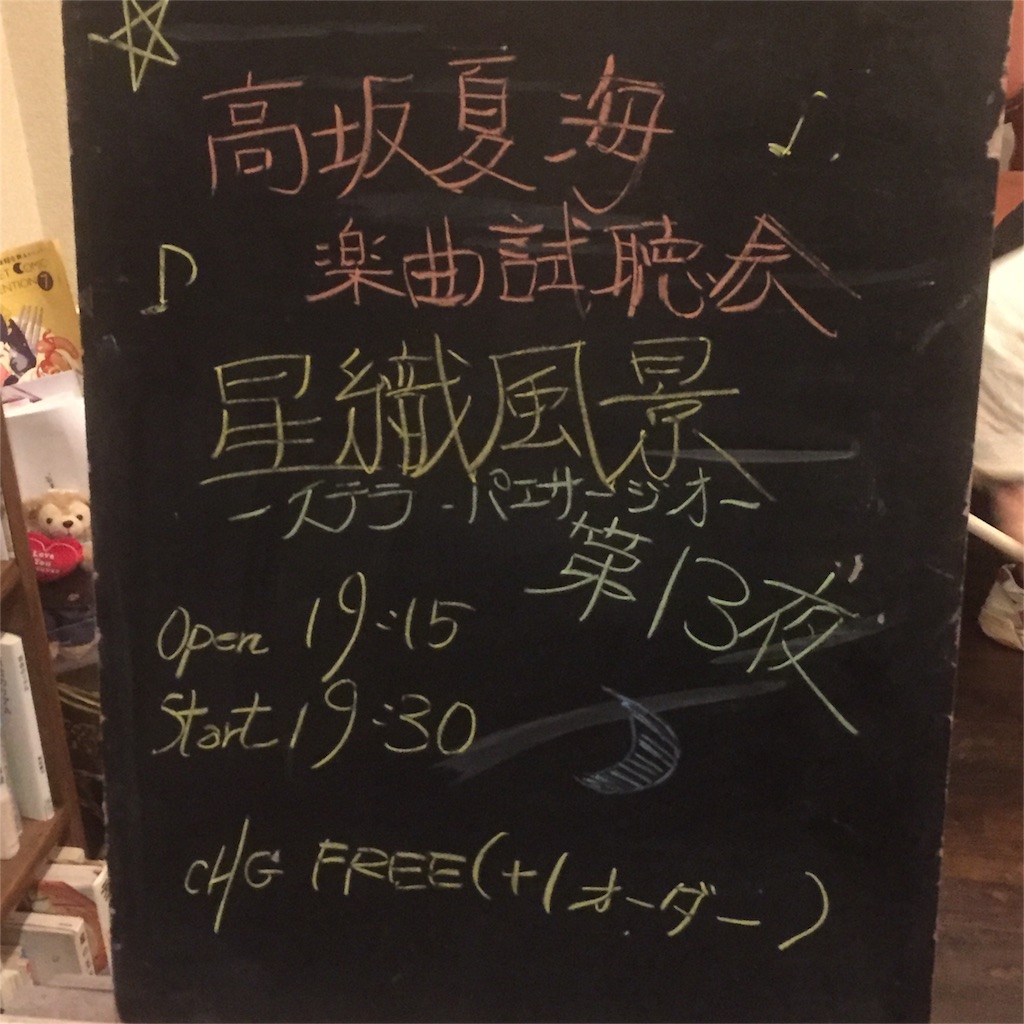 高坂夏海
楽曲試聴会
星織風景
-ステラ・パエサージオ-
第13夜
Open 19:15
Start 19:30
CHG FREE(+1オーダー)
Love
You